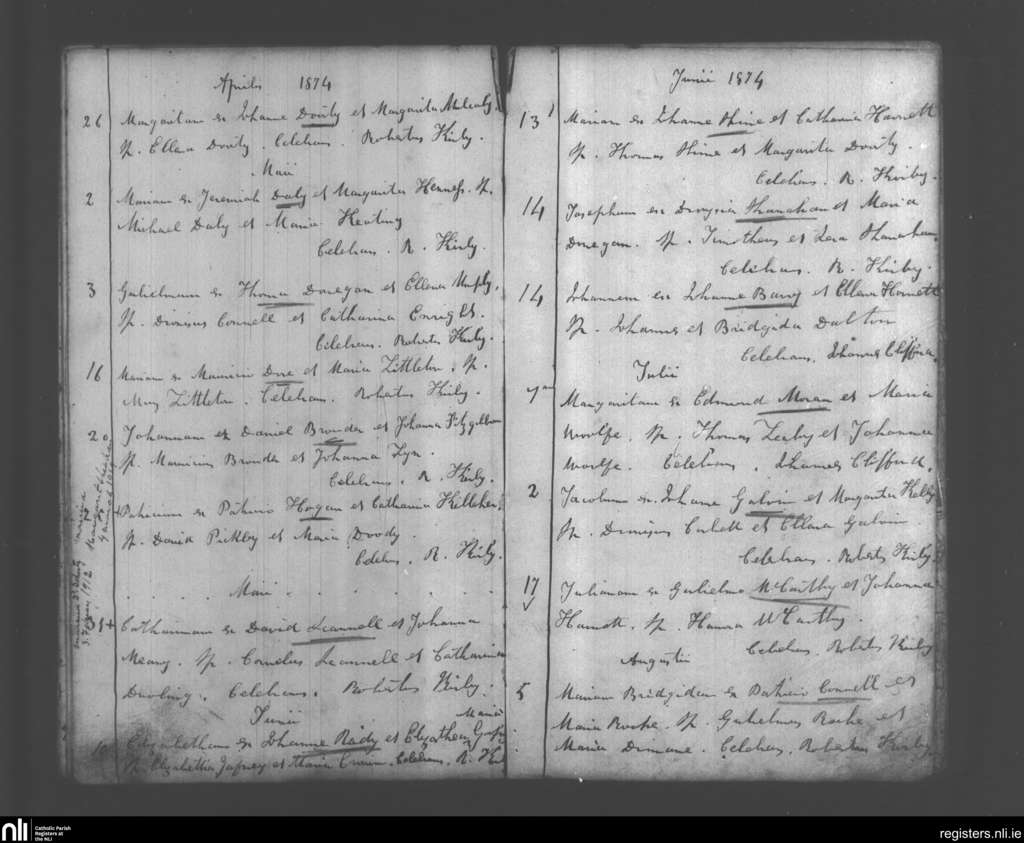 Aprilis 1874
26 Margaritam ex Johanne Douty et Margarita Mulcahy.
Sp. Ellena Douty. Celebrans. Robertus Kirby.
Maii
2 Mariam ex Jeremiah Daly et Margarita Henness. Sp.
Michael Daly et Maria Keating
Celebrans. R. Kirby.
3 Gulielmum ex Thoma Donegan et Ellena
Sp. Dionisius Connell et Catharina Enright.
Celebrans. Robertus Kirby.
16 Mariam ex Mauricio Dore et Maria Littleton. Sp.
Mary Littleton. Celebrans. Robertus Kirby.
20 Johannam ex Daniel Brouder et Johanna Fitzgibbon
Sp. Mauricius Brouder et Johanna
Celebrans. R. Kirby.
Patricium ex Patricio Hogan et Catharina Kelleher.
Sp. David et Maria Doody.
Celebrans. R. Kirby.
Maii
Catharinam ex David Scannell et Johanna
Meany. Sp. Cornelius Scannell et Catharina
Celebrans. Robertus Kirby.
Junii
10 Elizabetham ex Johanne Rady et
Sp. Elizabetha et Maria Celebrans. R.
1912
Junii 1874
13 Mariam ex Johanne Shine et Catharina Harnett
Sp. Thomas Shine et Margarita Douty.
Celebrans. R. Kirby.
14 Josephum ex Dionysio Shanahan et Maria
Donegan. Sp. Timotheus et Shanahan
Celebrans. R. Kirby.
14 Johannem ex Johanne Barry et Ellena Harnett
Sp. Johannes et Bridgida Dalton
Celebrans. Johannes Clifford.
Julii
Margaritam ex Edmund Moran et Maria
Woulfe. Sp. Thomas Leahy et Johanna
Woulfe. Celebrans. Johannes Clifford.
2 Jacobum ex Johanne Galvin et Margarita Kelly
Sp. Dionisius et Ellena Galvin
Celebrans. Robertus Kirby.
17 Julianam ex Gulielmo McCarthy et Johanna
Harnett. Sp. Hanora McCarthy.
Celebrans. Robertus Kirby
Augustii
5 Mariam Bridgidam ex Patricio Connell et
Maria Roche. Sp. Gulielmus Roche et
Maria. Celebrans. Robertus Kirby
nli
Catholic Parish
Registers at
the NLI
registers.nli.ie